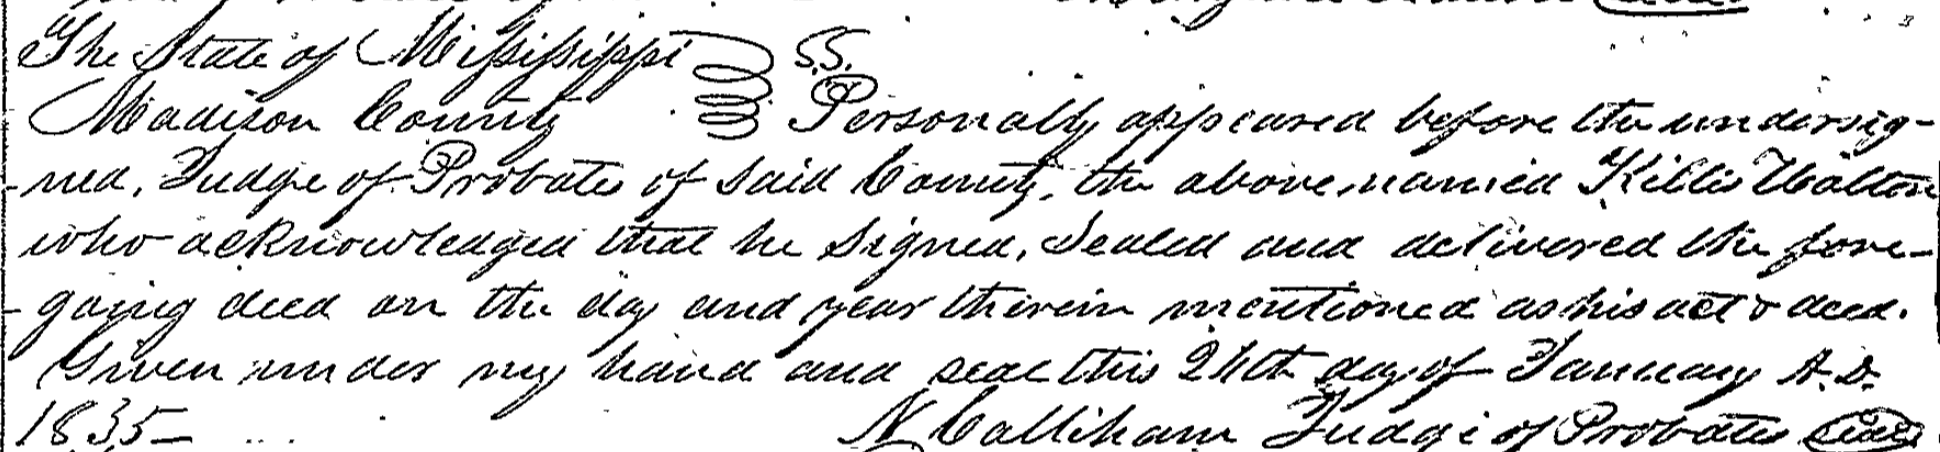 The State of Mississippi } S.S.
Madison County } Personally appeared before the undersig-
-ned, Judge of Probate of said County, the above named Killis Walton
who acknowledged that he signed, sealed and delivered the fore-
-going deed on the day and year therein mentioned as his act & deed.
Given under my hand and seal this 24th day of January A.D.
1835 — N Calliham Judge of Probate seal